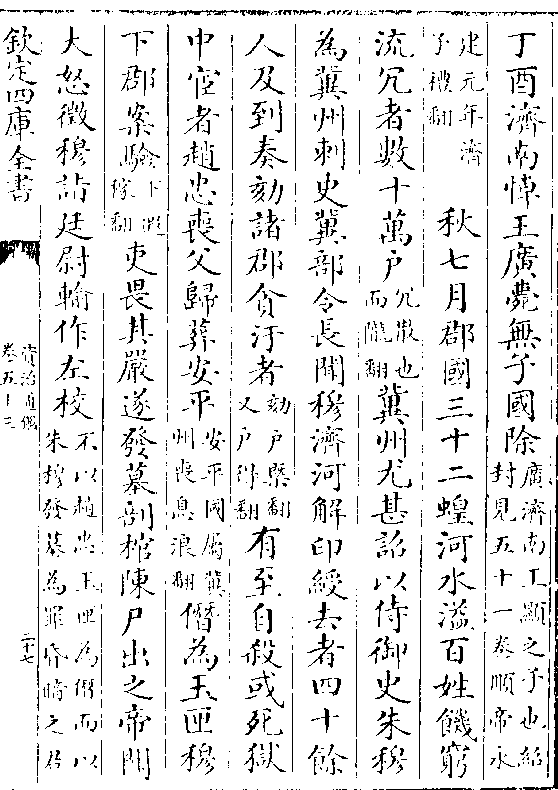 丁酉濟南悼王廣薨無子國除廣濟南王顯之子也紹封見五十一卷順帝永
建元年濟子禮翻秋七月郡國三十二蝗河水溢百姓饑窮
流冗者數十萬戶冗散也而隴翻冀州尤甚詔以侍御史朱穆
為冀州刺史冀部令長聞穆濟河解印綬去者四十餘
人及到奏劾諸郡貪汙者劾戶槩翻又戶得翻有至自殺或死獄
中宦者趙忠喪父歸葬安平安平國屬冀州喪息浪翻僭為玉匣穆
下郡案驗下遐稼翻吏畏其嚴遂發墓剖棺陳尸出之帝聞
大怒徵穆詣廷尉輸作左校不以趙忠玉匣為僭而以朱穆發墓為罪昏暗之君
欽定四庫全書
資治通鑑
卷五十三
二十七